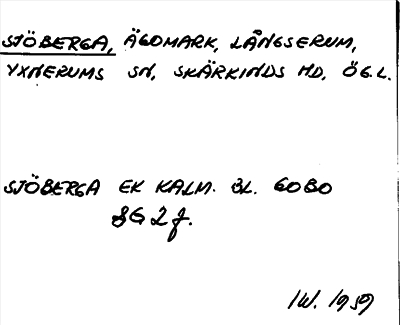 SJÖBERGA, ÄGOMARK, LÅNGSERUM,
YXNERUMS SN, SKÄRKINDS HD, ÖG.L.
SJÖBERGA EK KALM. BL. GOBO
8G2f.
IW. 1959